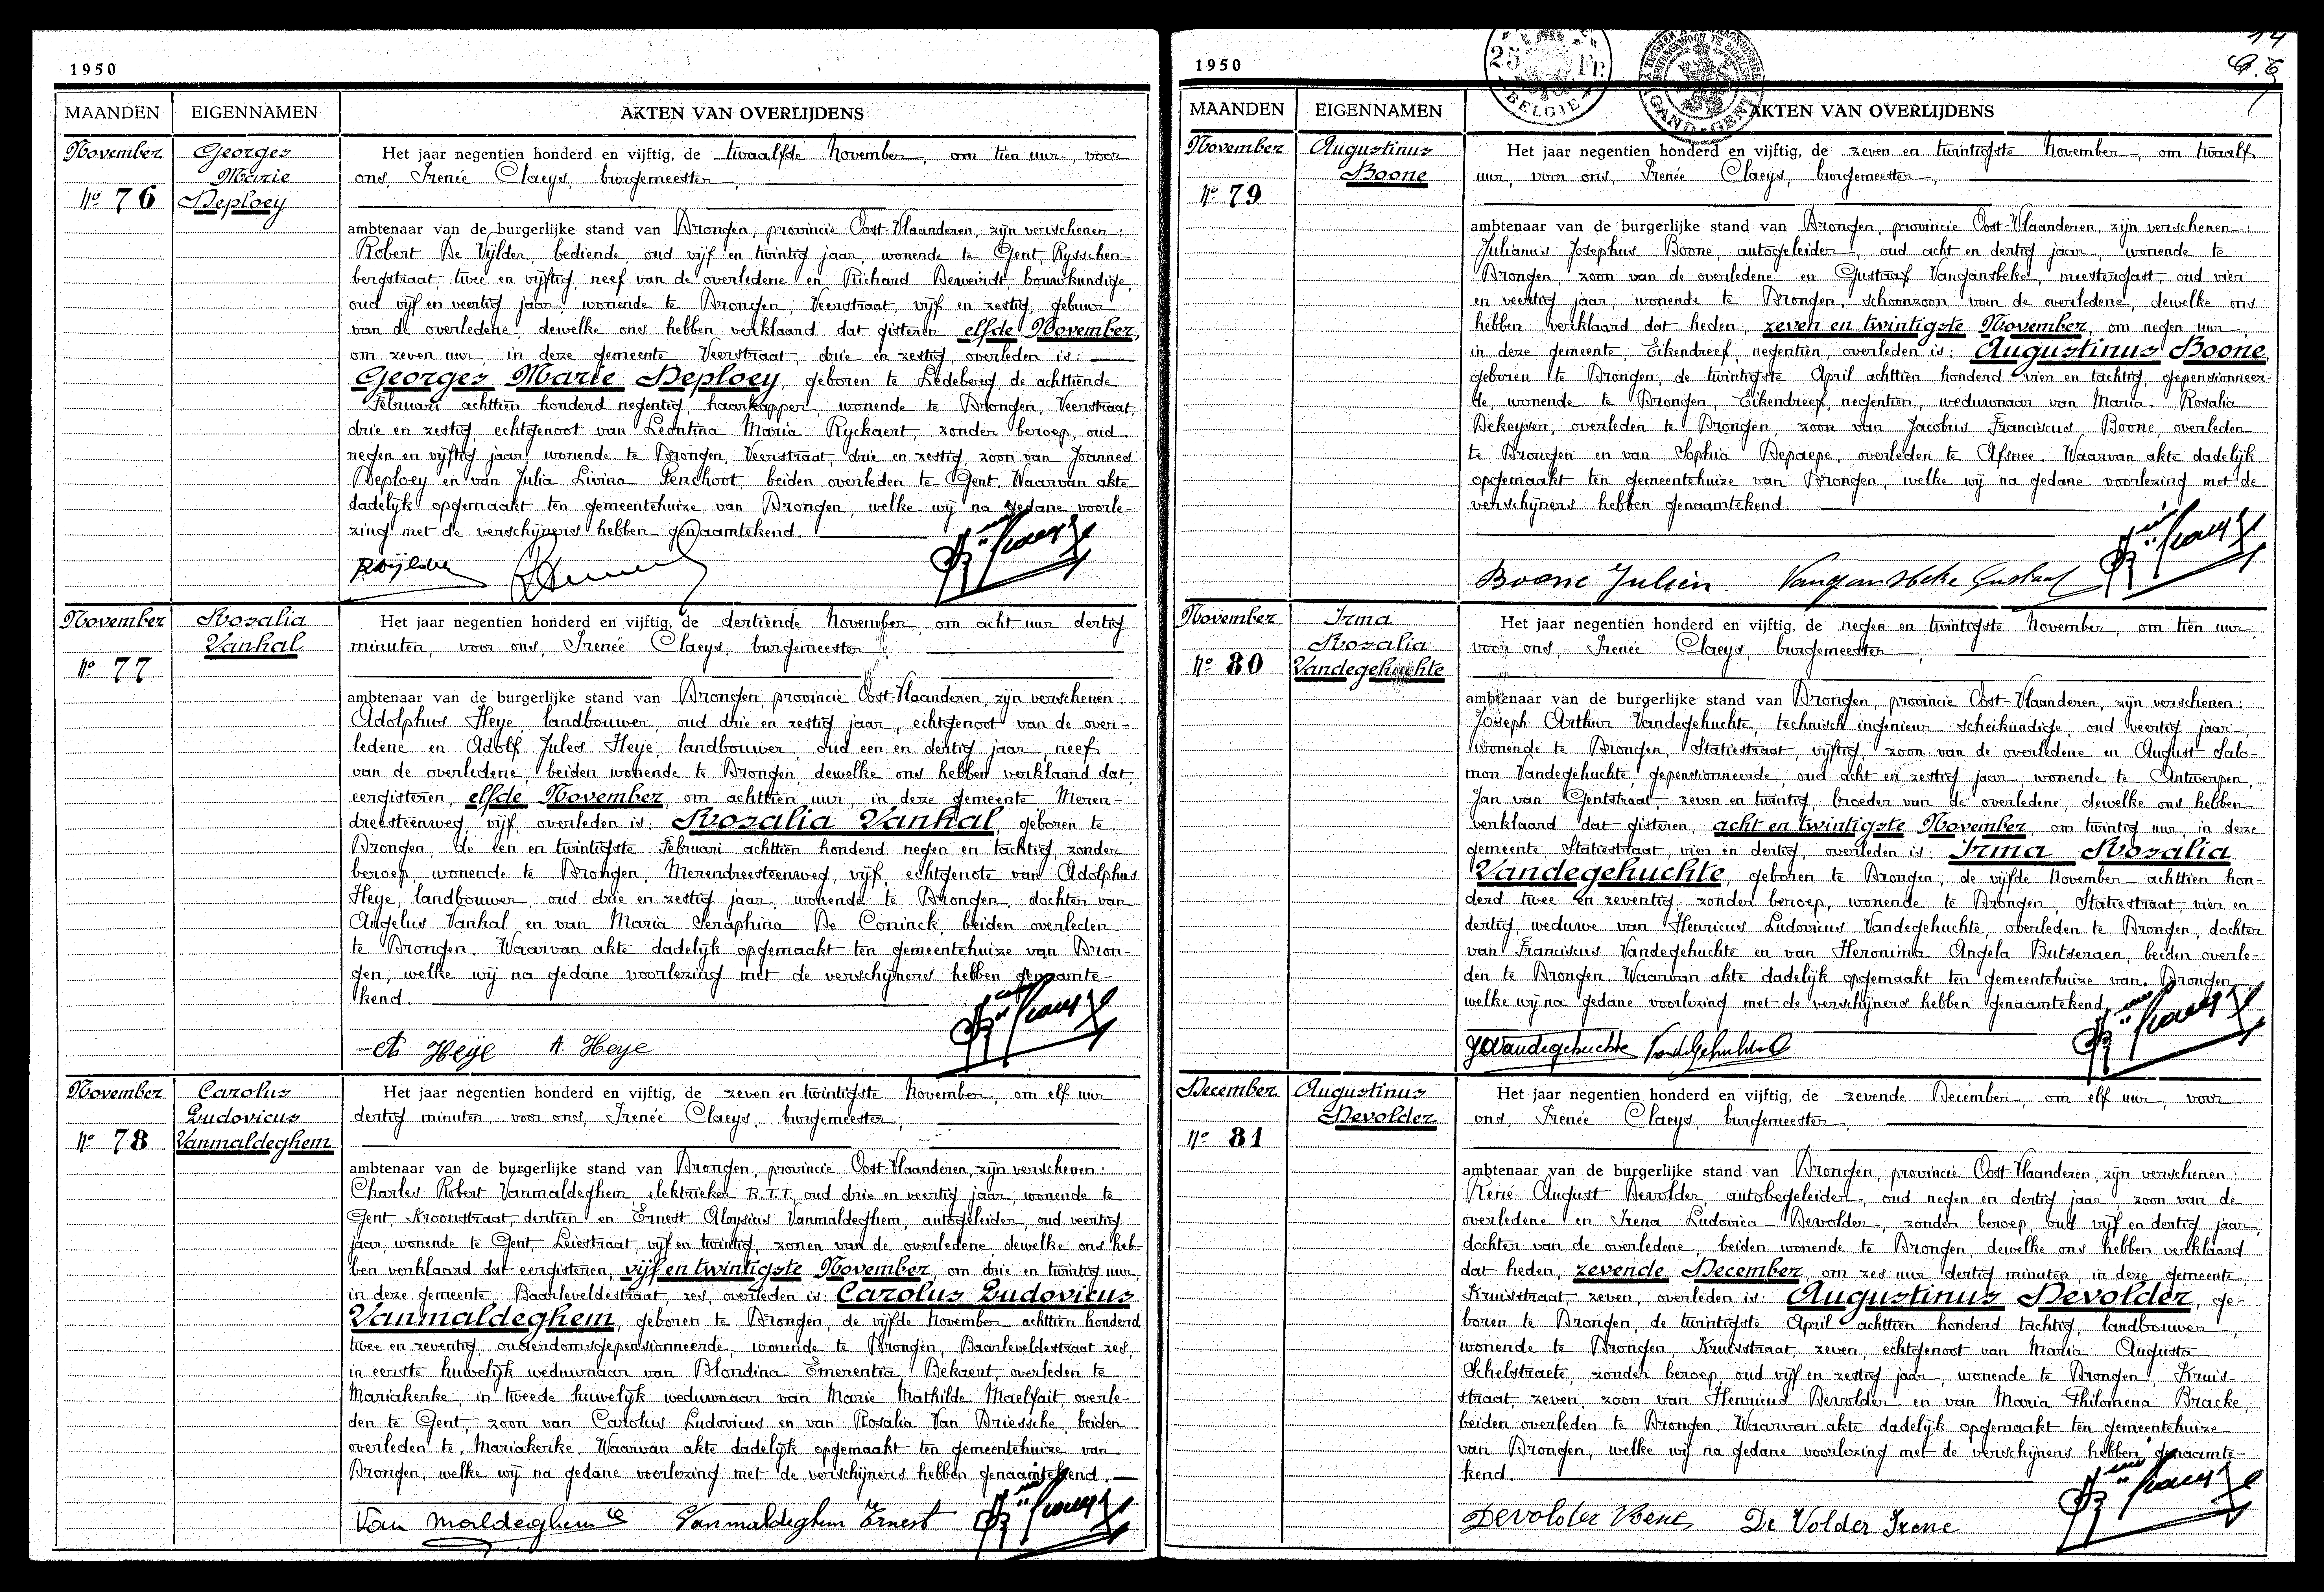 1950
MAANDEN EIGENNAMEN AKTEN VAN OVERLIJDENS
November
Nº 76
Georges
Marie
Deploey
Het jaar negentien honderd en vijftig, de twaalfde November, om tien uur, voor
ons, Irenée Claeys, burgemeester,
ambtenaar van de burgerlijke stand van Drongen, provincie Oost-Vlaanderen, zijn verschenen:
Robert De Vijlder, bediende, oud vijf en twintig jaar, wonende te Gent, Rysschen-
bergstraat, twee en vijftig, neef van de overledene en Richard Derweirdt, bouwkundige,
oud vijf en veertig jaar, wonende te Drongen, Veerstraat, vijf en zestig, gebuur
van de overledene, dewelke ons hebben verklaard dat gisteren elfde November,
om zeven uur, in deze gemeente Veerstraat, drie en zestig, overleden is:
Georges Marie Deploey, geboren te Ledeberg, de achttiende
Februari achttien honderd negentig, haarkapper, wonende te Drongen, Veerstraat,
drie en zestig, echtgenoot van Leontina Maria Ryckaert, zonder beroep, oud
negen en vijftig jaar, wonende te Drongen, Veerstraat, drie en zestig, zoon van Joannes
Deploey en van Julia Livina Penchoot, beiden overleden te Gent. Waarvan akte
dadelijk opgemaakt ten gemeentehuize van Drongen, welke wij na gedane voorle-
zing met de verschijners hebben genaamtekend.
November
Nº 77
Rosalia
Vanhal
Het jaar negentien honderd en vijftig, de dertiende November, om acht uur dertig
minuten, voor ons, Irenée Claeys, burgemeester,
ambtenaar van de burgerlijke stand van Drongen, provincie Oost-Vlaanderen, zijn verschenen:
Adolphus Heye, landbouwer, oud drie en zestig jaar, echtgenoot van de over-
ledene en Adolf Jules Heye, landbouwer, oud een en dertig jaar, neef
van de overledene, beiden wonende te Drongen, dewelke ons hebben verklaard dat
eergisteren, elfde November, om achttien uur, in deze gemeente Meren-
dreesteenweg, vijf, overleden is: Rosalia Vanhal, geboren te
Drongen, de een en twintigste Februari achttien honderd negen en tachtig, zonder
beroep, wonende te Drongen, Merendreesteenweg, vijf, echtgenote van Adolphus
Heye, landbouwer, oud drie en zestig jaar, wonende te Drongen, dochter van
Angelus Vanhal en van Maria Seraphina De Coninck, beiden overleden
te Drongen. Waarvan akte dadelijk opgemaakt ten gemeentehuize van Dron-
gen, welke wij na gedane voorlezing met de verschijners hebben genaamte-
kend.
A Heye A. Heye
November
Nº 78
Carolus
Ludovicus
Vanmaldeghem
Het jaar negentien honderd en vijftig, de zeven en twintigste November, om elf uur
dertig minuten, voor ons, Irenée Claeys, burgemeester,
ambtenaar van de burgerlijke stand van Drongen, provincie Oost-Vlaanderen, zijn verschenen:
Charles Robert Vanmaldeghem, elektrieker R.T.T., oud drie en veertig jaar, wonende te
Gent, Kroonstraat, dertien en Ernest Aloysius Vanmaldeghem, autogeleider, oud veertig
jaar, wonende te Gent, Leiestraat, vijf en twintig, zonen van de overledene, dewelke ons heb-
ben verklaard dat eergisteren, vijf en twintigste November, om drie en twintig uur,
in deze gemeente Baarleveldestraat, zes, overleden is: Carolus Ludovicus
Vanmaldeghem, geboren te Drongen, de vijfde November achttien honderd
twee en zeventig, ouderdomsgepensionneerde, wonende te Drongen, Baarleveldestraat zes,
in eerste huwelijk weduwnaar van Blondina Emerentia Bekaert, overleden te
Mariakerke, in tweede huwelijk weduwnaar van Marie Mathilde Maelfait, overle-
den te Gent, zoon van Carolus Ludovicus en van Rosalia Van Driessche, beiden
overleden te Mariakerke. Waarvan akte dadelijk opgemaakt ten gemeentehuize van
Drongen, welke wij na gedane voorlezing met de verschijners hebben genaamtekend.
Van Maldeghem C Vanmaldeghem Ernest
1950
25 Fr.
BELGIE
GAND-GENT
14
MAANDEN EIGENNAMEN AKTEN VAN OVERLIJDENS
November
Nº 79
Augustinus
Boone
Het jaar negentien honderd en vijftig, de zeven en twintigste November, om twaalf
uur, voor ons, Irenée Claeys, burgemeester,
ambtenaar van de burgerlijke stand van Drongen, provincie Oost-Vlaanderen, zijn verschenen:
Julianus Josephus Boone, autogeleider, oud acht en dertig jaar, wonende te
Drongen, zoon van de overledene en Gustaaf Vangansbeke, meestergast, oud vier
en veertig jaar, wonende te Drongen, schoonzoon van de overledene, dewelke ons
hebben verklaard dat heden, zeven en twintigste November, om negen uur,
in deze gemeente, Eikendreef, negentien, overleden is: Augustinus Boone,
geboren te Drongen, de twintigste April achttien honderd vier en tachtig, gepensionneer-
de, wonende te Drongen, Eikendreef, negentien, weduwnaar van Maria Rosalia
Dekeyser, overleden te Drongen, zoon van Jacobus Franciscus Boone, overleden
te Drongen en van Sophia Depaepe, overleden te Afsnee. Waarvan akte dadelijk
opgemaakt ten gemeentehuize van Drongen, welke wij na gedane voorlezing met de
verschijners hebben genaamtekend.
Boone Julien. Vangansbeke Gustaaf
November
Nº 80
Irma
Rosalia
Vandegehuchte
Het jaar negentien honderd en vijftig, de negen en twintigste November, om tien uur,
voor ons, Irenée Claeys, burgemeester,
ambtenaar van de burgerlijke stand van Drongen, provincie Oost-Vlaanderen, zijn verschenen:
Joseph Arthur Vandegehuchte, technisch ingenieur scheikundige, oud veertig jaar,
wonende te Drongen, Statiestraat, vijftig, zoon van de overledene en August Salo-
mon Vandegehuchte, gepensionneerde, oud acht en zestig jaar, wonende te Antwerpen,
Jan van Gentstraat, zeven en twintig, broeder van de overledene, dewelke ons hebben
verklaard dat gisteren, acht en twintigste November, om twintig uur, in deze
gemeente, Statiestraat, vier en dertig, overleden is: Irma Rosalia
Vandegehuchte, geboren te Drongen, de vijfde November achttien hon-
derd twee en zeventig, zonder beroep, wonende te Drongen, Statiestraat, vier en
dertig, weduwe van Henricus Ludovicus Vandegehuchte, overleden te Drongen, dochter
van Franciscus Vandegehuchte en van Heronima Angela Butseraen, beiden overle-
den te Drongen. Waarvan akte dadelijk opgemaakt ten gemeentehuize van Drongen,
welke wij na gedane voorlezing met de verschijners hebben genaamtekend.
JVandegehuchte
December
Nº 81
Augustinus
Devolder
Het jaar negentien honderd en vijftig, de zevende December, om elf uur, voor
ons, Irenée Claeys, burgemeester,
ambtenaar van de burgerlijke stand van Drongen, provincie Oost-Vlaanderen, zijn verschenen:
René August Devolder, autobegeleider, oud negen en dertig jaar, zoon van de
overledene en Irena Ludovica Devolder, zonder beroep, oud vijf en dertig jaar,
dochter van de overledene, beiden wonende te Drongen, dewelke ons hebben verklaard
dat heden, zevende December, om zes uur dertig minuten, in deze gemeente,
Kruisstraat, zeven, overleden is: Augustinus Devolder, ge-
boren te Drongen, de twintigste April achttien honderd tachtig, landbouwer,
wonende te Drongen, Kruisstraat zeven, echtgenoot van Maria Augusta
Schelstraete, zonder beroep, oud vijf en zestig jaar, wonende te Drongen, Kruis-
straat, zeven, zoon van Henricus Devolder en van Maria Philomena Bracke,
beiden overleden te Drongen. Waarvan akte dadelijk opgemaakt ten gemeentehuize
van Drongen, welke wij na gedane voorlezing met de verschijners hebben genaamte-
kend.
Devolder René De Volder Irene